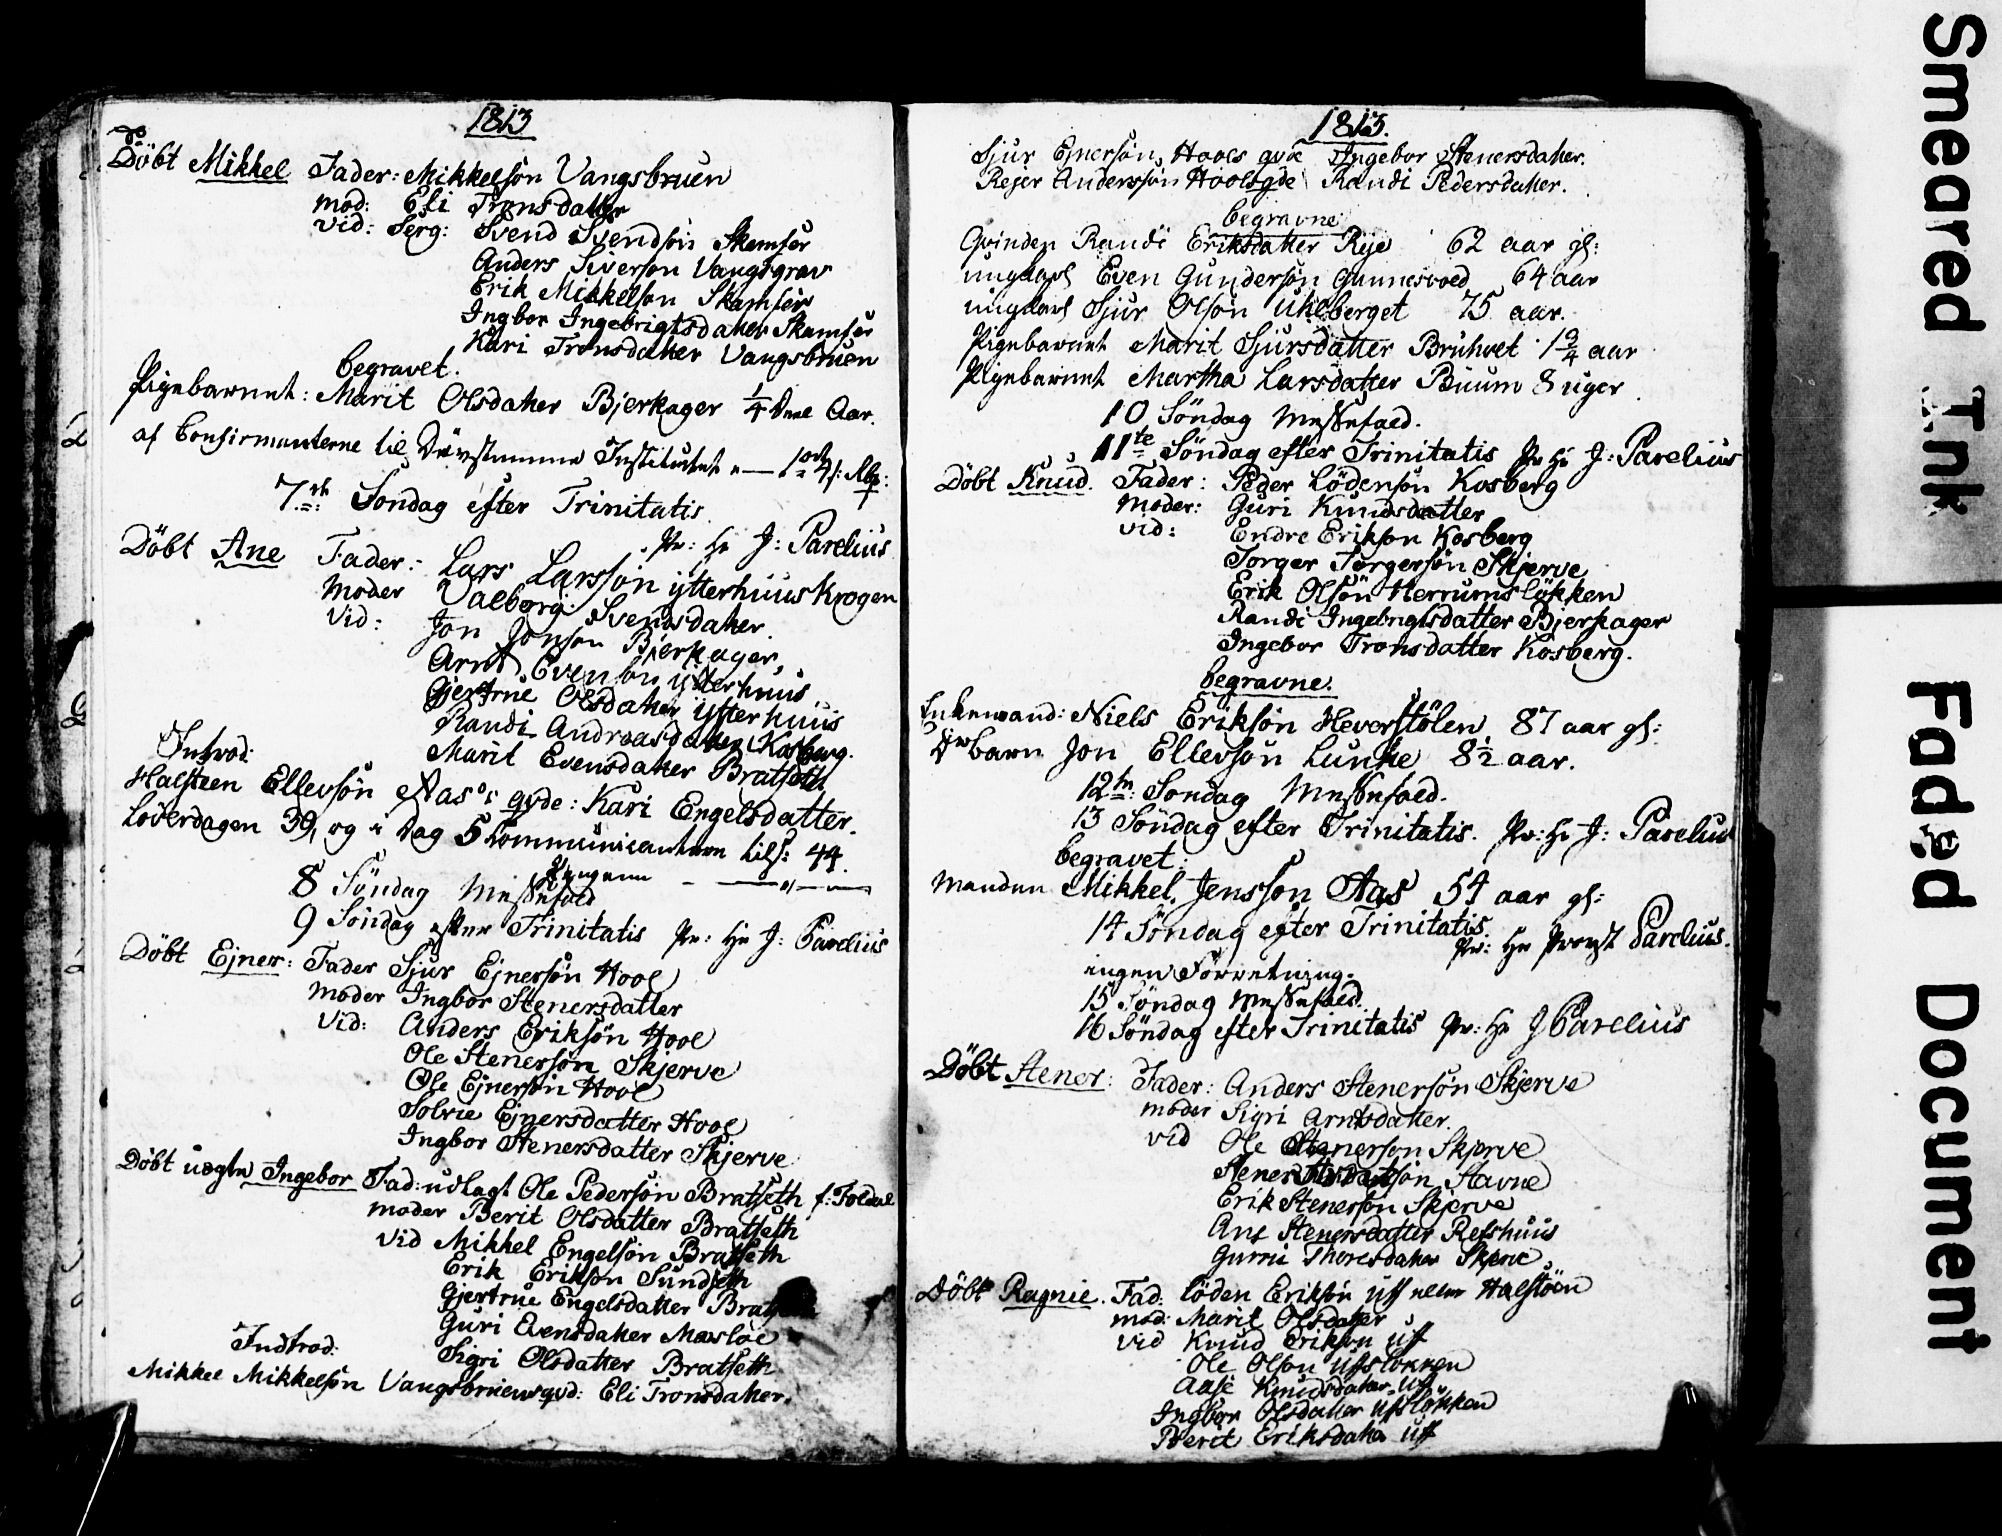 1813
Do
Döbt Mikkel Fader: Mikkelsön Vangsbruen
mod: Eli Tronsdatter
vid: Serg: Svend Svendsön Skamfer
Anders Siverson Vangsgrav
Erik Mikkelson Skamfer
Ingbor Ingebrigtsdatter Skamfer
Kari Tronsdatter Vangsbruen
begravet.
Pigebarnet: Marit Olsdatter Bjerkager 1/4 Deel Aar.
af Confirmanterne til Dövstumme Institutet
7de Söndag efter Trinitatis
Pr: Hr J: Parelius
Döbt Ane Fader: Lars Larssön ytterhuus Krogen
Moder Valborg Svendsdatter.
Vid: Jon Jonson Bjerkager,
Arnt Evensön ytterhuus
Gjertrue Olsdatter ytterhuus
Randi Andreasdatter Kosberg.
Marit Evensdatter Bratseth
Introd:
Halsteen Ellevsön Aas's qvde: Kari Engelsdatter.
Löverdagen 39, og i Dag 5 Communicantere tils: 44.
8 Söndag Messefald
9 Söndag efter Trinitatis Pr: Hr J: Parelius
Döbt Ejner: Fader Sjur Ejnersön Hool
Moder Ingbor Stenersdatter
Vid: Anders Eriksön Hool
Ole Stenersön Skjerve
Ole Ejnersön Hool
Solvie Ejnersdatter Hool
Ingbor Stenersdatter Skjerve
Döbt uægte Ingebor Fad: udlagt Ole Pedersön Bratseth f: Foldal
moder Berit Olsdatter Bratseth
Vid Mikkel Engelsön Bratseth
Erik Erikson Sundseth
Gjertrue Engelsdatter Bratseth
Guri Evensdatter Masloe
Sigri Olsdatter Bratseth
Indtrod:
Mikkel Mikkelsön Vangsbruens qvd: Eli Tronsdatter.
1813.
Sjur Ejnersön Hools qvde Ingebor Stenersdatter.
Rejer Anderssön Hools qde Randi Pedersdatter.
begravne:
Qvinden Randi Eriksdatter Rye 62 aar gl:
ungkarl Even Gundersön Gunnesvoed 64 aar
ungkarl Sjur Olsön Uhlberget 75 aar.
Pigebarnet Marit Sjursdatter Bruhvet 1 3/4 aar
Pigebarnet Martha Larsdatter Buum 8 uger
10 Söndag Messefald.
11te Söndag efter Trinitatis Pr Hr J: Parelius
Döbt Knud. Fader: Peder Lödensön Kosberg
Moder: Guri Knudsdatter
Vid: Endre Erikson Kosberg
Torger Torgersön Skjerve
Erik Olsön Herrumslökken
Randi Ingebrigtsdatter Bjerkager
Ingebor Tronsdatter Kosberg.
begravne:
Enkemand: Niels Eriksön Heverstölen, 87 aar gl:
barn Jon Ellevsön Lunke 8 1/2 aar.
12te: Söndag Messefald.
13 Söndag efter Trinitatis. Pr: Hr J: Parelius
begravet:
Manden Mikkel. Jensson Aas 54 aar gl:
14 Söndag efter Trinitatis.
Pr: Hr Provst Parelius.
ingen Forretning.
15 Söndag Messefald.
16 Söndag efter Trinitatis Pr: Hr J Parelius
Döbt Stener: Fader: Anders Stenersön Skjerve
moder Sigri Arntsdatter.
vid Ole Stenerson Skjerve
Stener Stavne
Erik Stenersön Skjerve
Ane Stenersdatter Refshuus
Gurri Thoresdatter Skjerve
Döbt Ragnie. Fad: Löden Eriksön Uff eller Halstöen
mod: Marit Olsdatter
vid Knud Eriksön Uff
Ole Olson Ufslökken
Aase Knudsdatter Uff
Ingbor Olsdatter Ufslökken
Berit Eriksdatter Uff
Smeared Ink
Faded Document